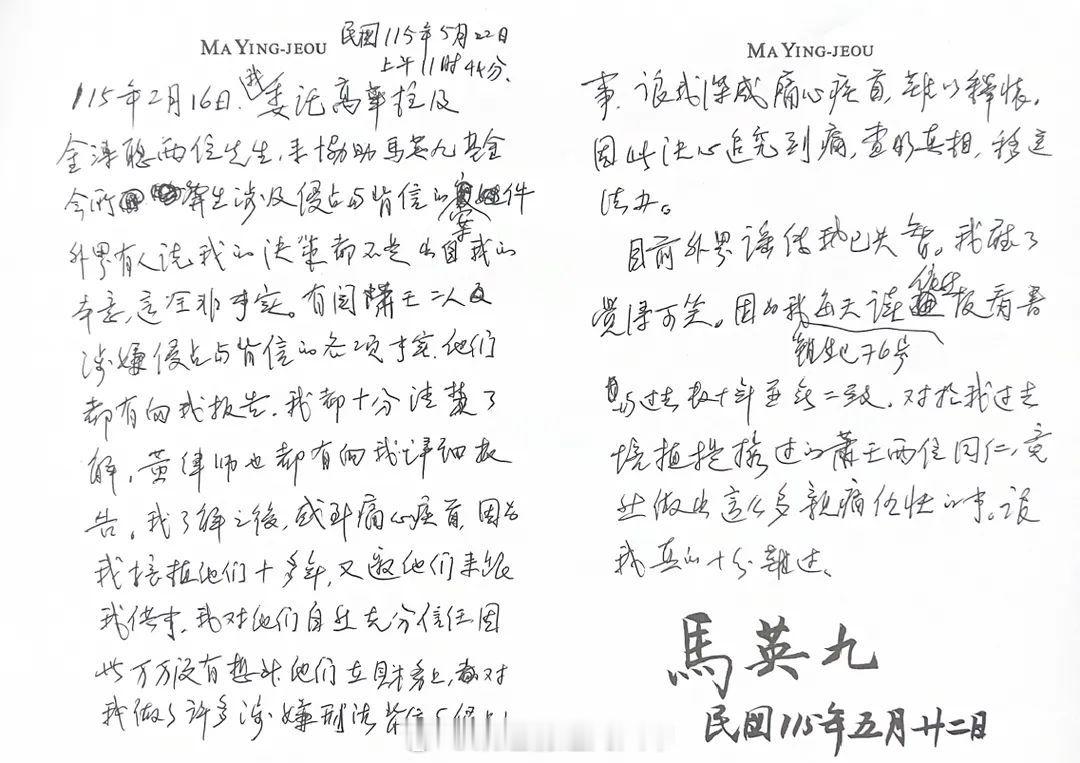 MA YING-JEOU
民國115年5月22日
上午11時44分.
115年2月16日.我委託高華柱及
金溥聰兩位先生,來協助馬英九基金
會所 發生涉及侵占与背信的案件
外界有人说,我的决策都不是出自我的
本意,這全非事实。有関蕭王二人
涉嫌侵占与背信的各项事实,他们
都有向我报告.我都十分清楚了
解,黄律师也都有向我详细报
告。我了解之後,感到痛心疾首,因为
我培植他们十多年,又邀他们来跟
我供事,我对他们自然充分信任因
此万万没有想到他们在財務上,都对
我做了許多涉嫌刑法背信
MA YING-JEOU
事.讓我深感痛心疾首,難以釋懷.
因此决心追究到底,查明真相,移送
法办。
目前外界谣传我已失智。我听了
覺得可笑。因为我每天读 报看書
与过去数十年並无二致.对於我过去
培植提携过的蕭王两位同仁,竟
然做出这么多親痛仇快的事。让
我真的十分難过.
馬英九
民國115年五月廿二日